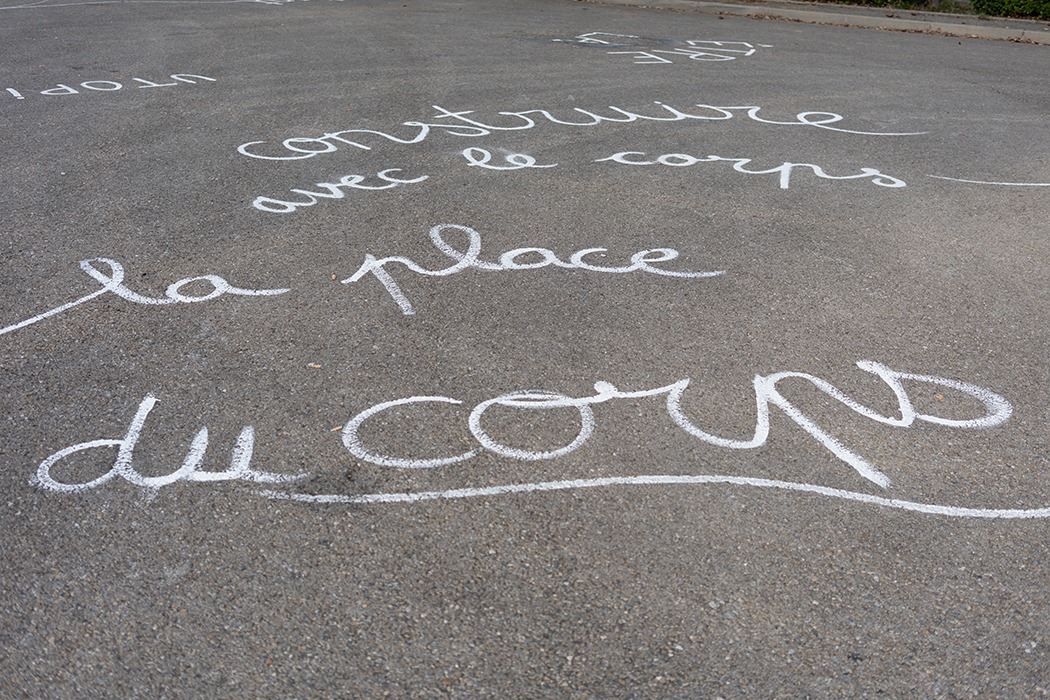 UTOPI
construire
avec le corps
la place
du corps